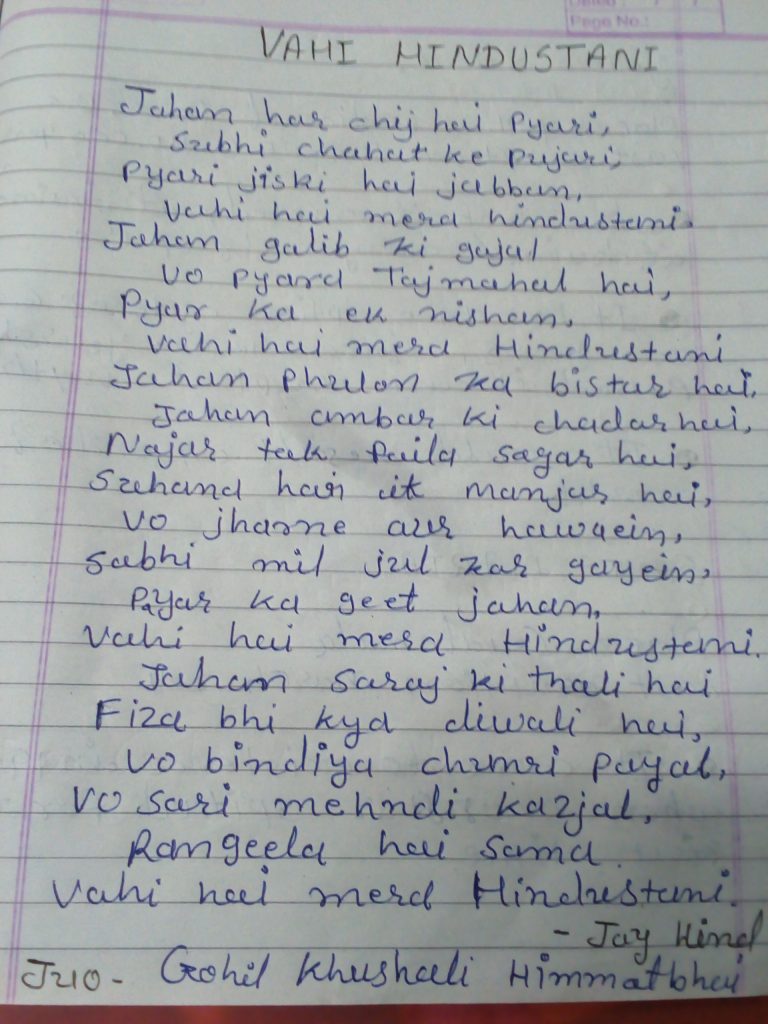 Page No.:
VAHI HINDUSTANI
Jahan har chij hai Pyari,
Subhi chahat ke pujari,
Pyari jiski hai jabban,
Vahi hai mera hindustani.
Jaham galib ki gajal
Vo pyara Tajmahal hai,
Pyar ka ek nishan,
Vahi hai mera Hindustani
Jahan Phulon ka bistar hai,
Jahan ambar ki chadar hai,
Najar tak faila sagar hai,
Suhana hai manjar hai,
Vo jharne aur hawaein,
Sabhi mil jul kar gayein,
Pyar ka geet jahan,
Vahi hai mera Hindustani.
Jaham Saraj ki thali hai
Fiza bhi kya diwali hai,
Vo bindiya chunri payal,
Vo sari mehndi kazjal,
Rangeela hai sama.
Vahi hai mera Hindustani.
- Jay Hind
Gohil Khushali Himmatbhai